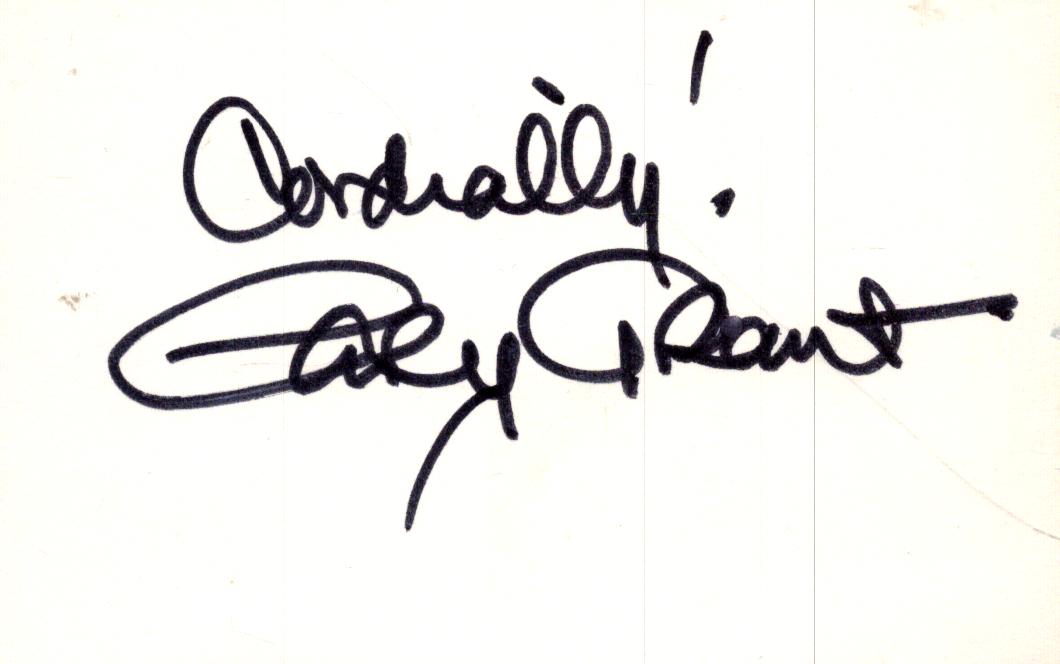 Cordially!
Cary Grant